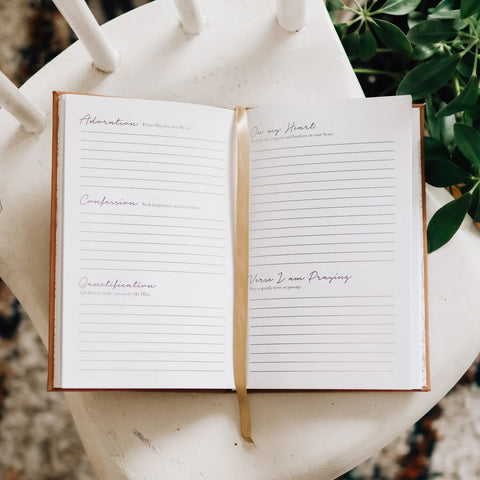 Adoration Praise Him for who He is.
Confession Seek forgiveness and repentance.
Sanctification
Ask Him to make you more like Him.
On my Heart
Pray for the requests and burdens on your heart.
Verse I am Praying
Pray a specific verse or passage.